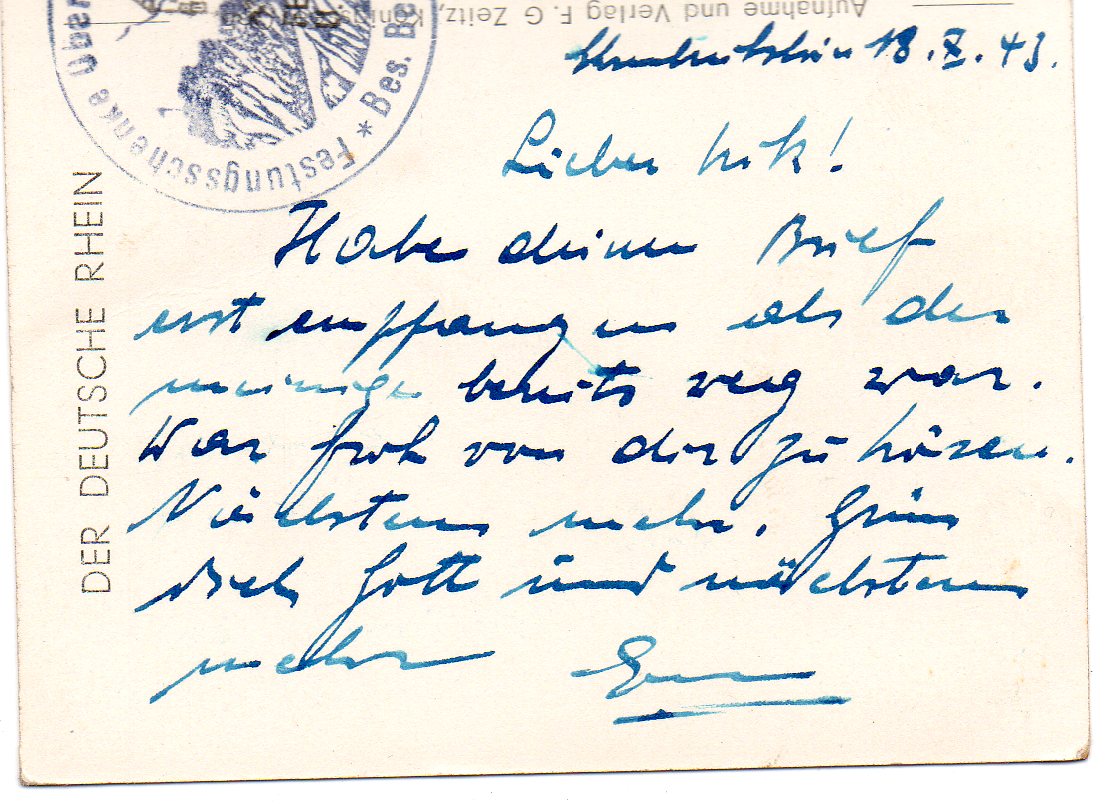 Aufnahme und Verlag F. G Zeitz, König
Festungsschenke * Bes. Be
DER DEUTSCHE RHEIN
18. X. 43.
Lieber
Habe deinen Brief
erst empfangen als der
meinige bereits weg war.
War froh von dir zu hören.
Nächstens mehr. Grüss
dich Gott und nächstens
mehr